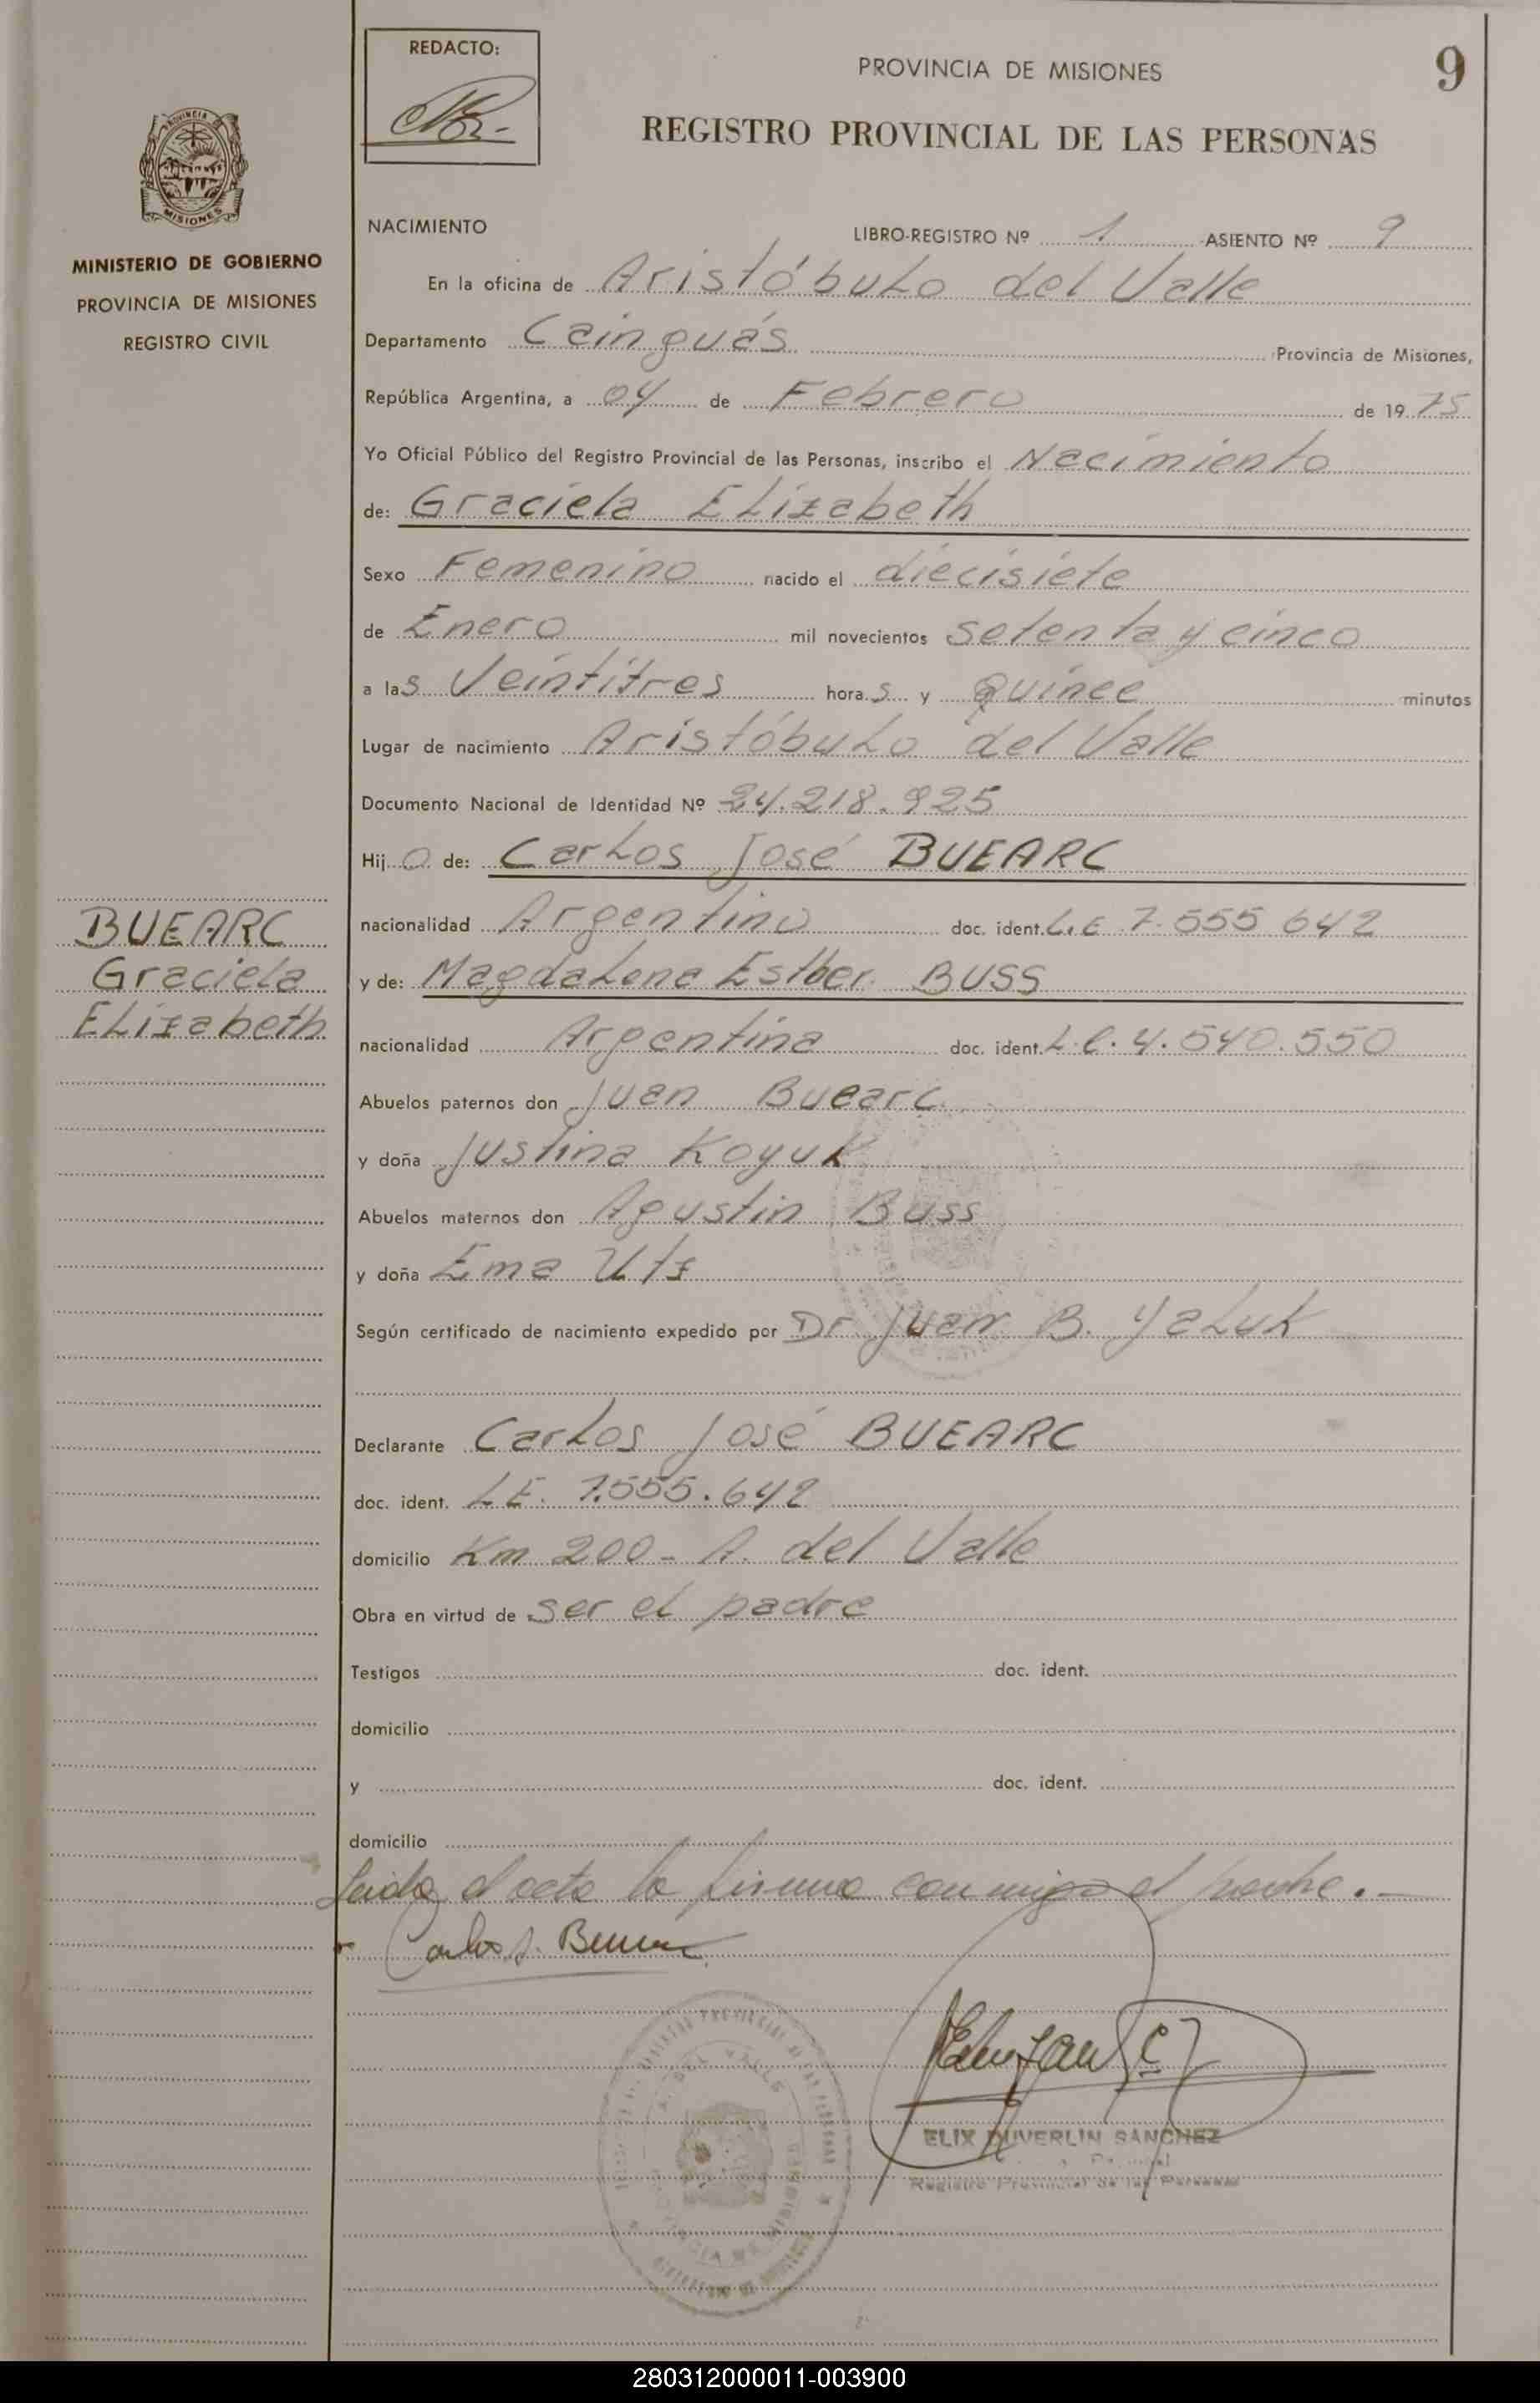 REDACTO:
PROVINCIA DE MISIONES
9
REGISTRO PROVINCIAL DE LAS PERSONAS
PROVINCIA
MISIONES
MINISTERIO DE GOBIERNO
PROVINCIA DE MISIONES
REGISTRO CIVIL
NACIMIENTO
LIBRO-REGISTRO Nº 1 ASIENTO Nº 9
En la oficina de Aristóbulo del Valle
Departamento Cainguás Provincia de Misiones,
República Argentina, a 04 de Febrero de 1975
Yo Oficial Público del Registro Provincial de las Personas, inscribo el Nacimiento
de: Graciela Elizabeth
Sexo Femenino nacido el diecisiete
de Enero mil novecientos setenta y cinco
a las Veintitres horas y Quince minutos
Lugar de nacimiento Aristóbulo del Valle
Documento Nacional de Identidad Nº 24.218.925
Hijo de: Carlos José BUEARC
nacionalidad Argentino doc. ident. L.E 7.555 642
y de: Magdalena Esther BUSS
nacionalidad Argentina doc. ident. L.C. 4.540.550
BUEARC
Graciela
Elizabeth
Abuelos paternos don Juan Buearc
y doña Justina Koyuk
Abuelos maternos don Agustin Buss
y doña Ema Utz
Según certificado de nacimiento expedido por Dr Juan B. Yaluk
Declarante Carlos José BUEARC
doc. ident. L.E. 7.555.642
domicilio Km 200 - A. del Valle
Obra en virtud de ser el padre
Testigos doc. ident.
domicilio
y doc. ident.
domicilio
Leida el acta la firma conmigo el padre.-
Carlos J.
ELIX DUVERLIN SANCHEZ
Registro Provincial de las Personas
280312000011-003900